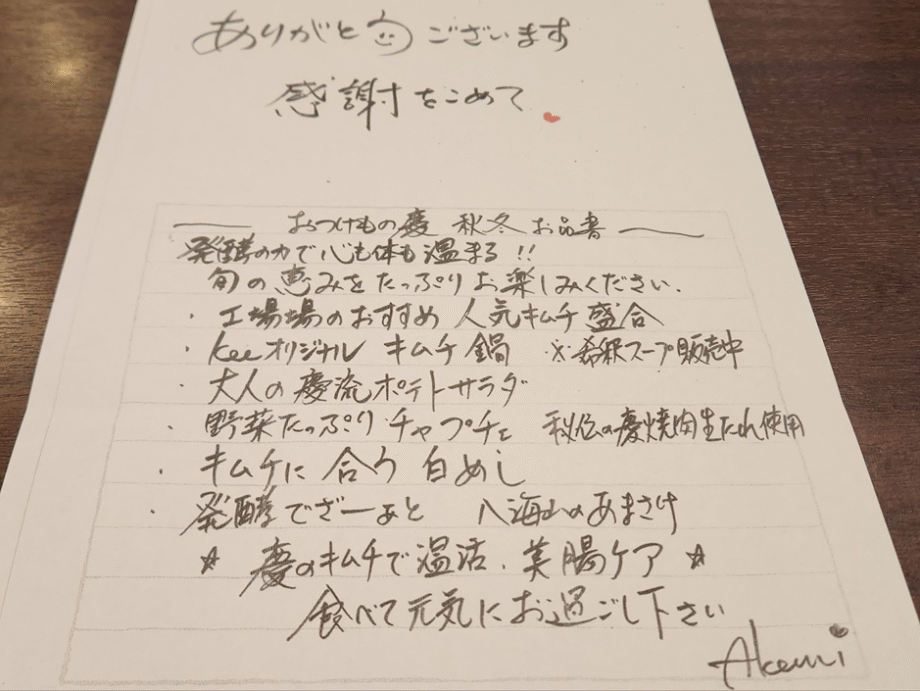 ありがとうございます
感謝をこめて
おつけもの慶 秋冬 お品書
発酵の力で心も体も温まる!!
旬の恵みをたっぷりお楽しみください.
・工場場のおすすめ 人気キムチ盛合
・Keeオリジナル キムチ鍋 ※希釈スープ販売中
・大人の慶流ポテトサラダ
・野菜たっぷりチャプチェ 秘伝の慶焼肉生たれ使用
・キムチに合う白めし
・発酵でざーぁと 八海山のあまさけ
☆ 慶のキムチで温活.美腸ケア ☆
食べて元気にお過ごし下さい
Akemi